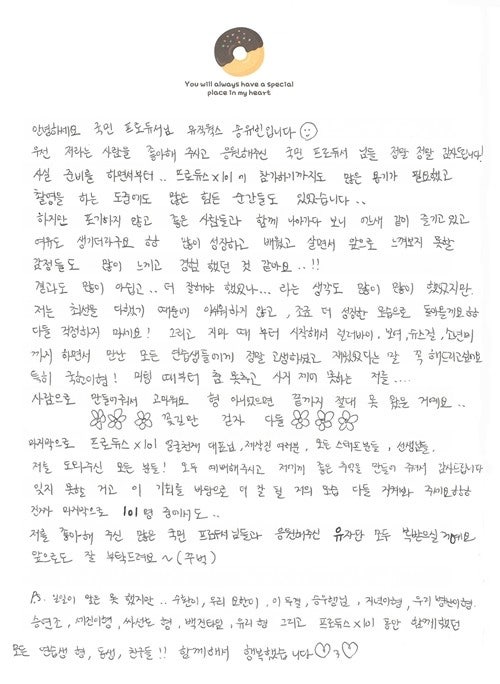 You will always have a special
place in my heart
안녕하세요 국민 프로듀서님 뮤직웍스 송유빈입니다
우선 저라는 사람을 좋아해 주시고 응원해주신 국민 프로듀서 님들 정말 정말 감사드립니다!
사실 준비를 하면서부터.. 프로듀스X101 에 참가하기까지도 많은 용기가 필요했고
촬영을 하는 도중에도 많은 힘든 순간들도 있었습니다..
하지만 포기하지 않고 좋은 사람들과 함께 나아가다 보니 어느새 같이 즐기고 있고
여유도 생기더라구요 하하 많이 성장하고 배웠고 살면서 앞으로 느껴보지 못할
감정들도 많이 느끼고 경험 했던 것 같아요..!!
결과도 많이 아쉽고.. 더 잘해야 했었나... 라는 생각도 많이 많이 했었지만.
저는 최선을 다했기 때문에 아쉬워하지 않고, 조금 더 성장한 모습으로 돌아올게요 하하
다들 걱정하지 마세요! 그리고 지마 때 부터 시작해서 럴러바이, 보더, 뉴스걸, 소년미
까지 하면서 만난 모든 연습생들에게 정말 고생하셨고 재밌었다는 말 꼭 해드리고싶어요
특히 국헌이형! 미팅 때부터 춤 못추고 사지 제어 못하는 저를....
사람으로 만들어줘서 고마워요 형 아니었으면 끝까지 절대 못 왔을 거예요..
꽃길만 걷자 다들
마지막으로 프로듀스X101 얼굴천재 대표님, 제작진 여러분, 모든 스태프분들, 선생님들.
저를 도와주신 모든 분들! 모두 예뻐해주시고 저에게 좋은 추억을 만들어 주셔서 감사드립니다
잊지 못할 거고 이 기회를 바탕으로 더 잘 될 저의 모습 다들 지켜봐 주세요 하하
진짜 마지막으로 101명 중에서도..
저를 좋아해 주신 많은 국민 프로듀서님들과 응원해주신 유자단 모두 복받으실거예요
앞으로도 잘 부탁드려요 ~ (꾸벅)
P.S. 일일이 많은 못 했지만.. 수환이, 우리 요한이, 이 두절, 승우행님, 저녁이형, 우리 병찬이형.
승연조, 세진이형, 싸선도 형, 백진타임, 유리 형 그리고 프로듀스X101 동안 함께했던
모든 연습생 형, 동생, 친구들!! 함께해서 행복했습니다